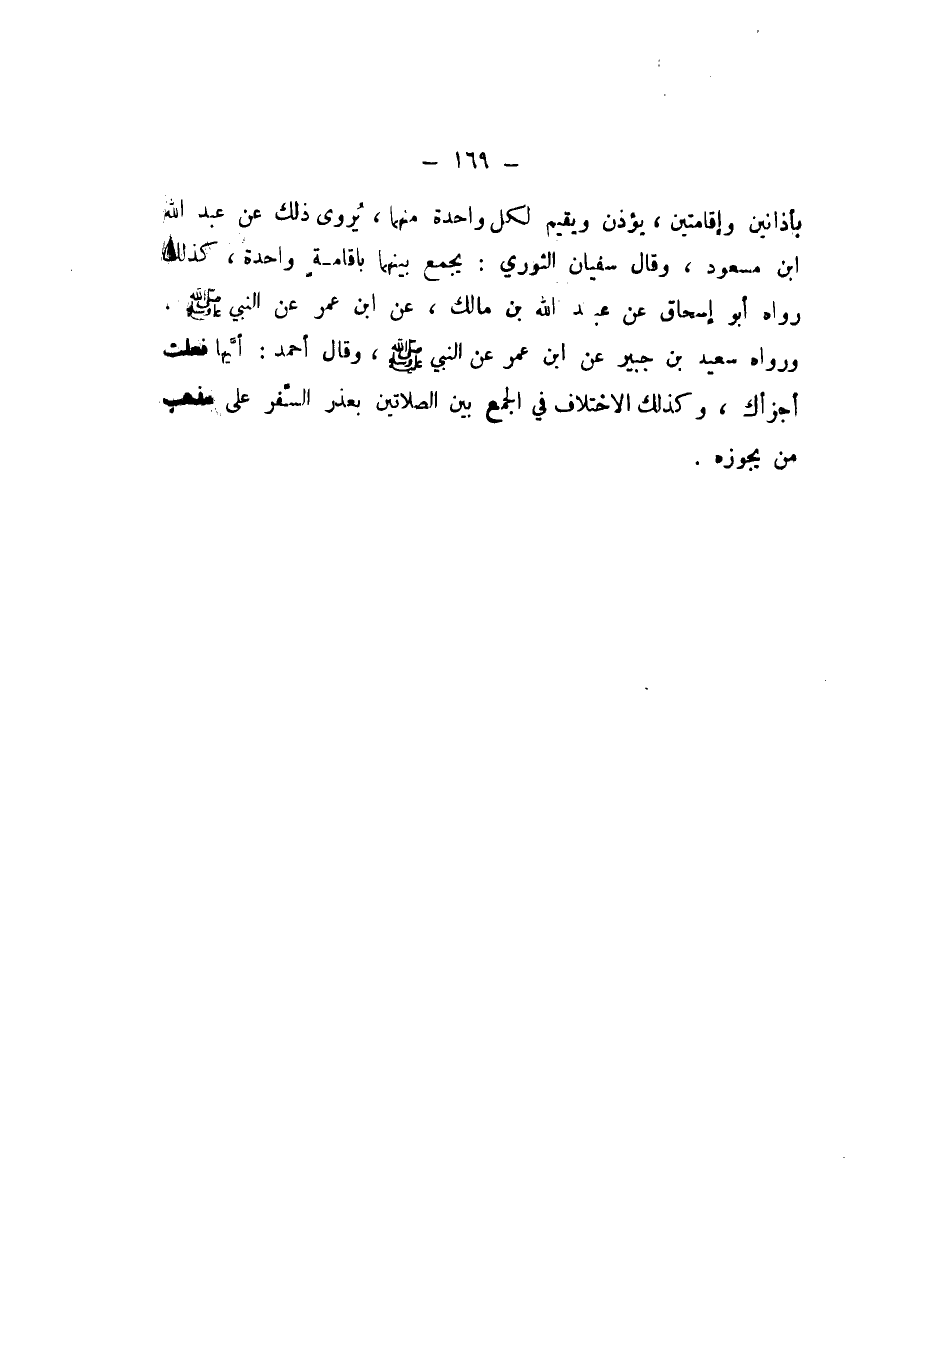 – ١٦٩ –
بأذانين وإقامتين ، يؤذن ويقيم لكل واحدة منهما ، يُروى ذلك عن عبد الله
ابن مسعود ، وقال سفيان الثوري : يجمع بينهما باقامـةٍ واحدة ، كذلك
رواه أبو إسحاق عن عبد الله بن مالك ، عن ابن عمر عن النبي ﷺ .
ورواه سعيد بن جبير عن ابن عمر عن النبي ﷺ ، وقال أحمد : أيَّها فعلت
أجزأك ، وكذلك الاختلاف في الجمع بين الصلاتين بعذر السَّفر على مذهب
من يجوزه .